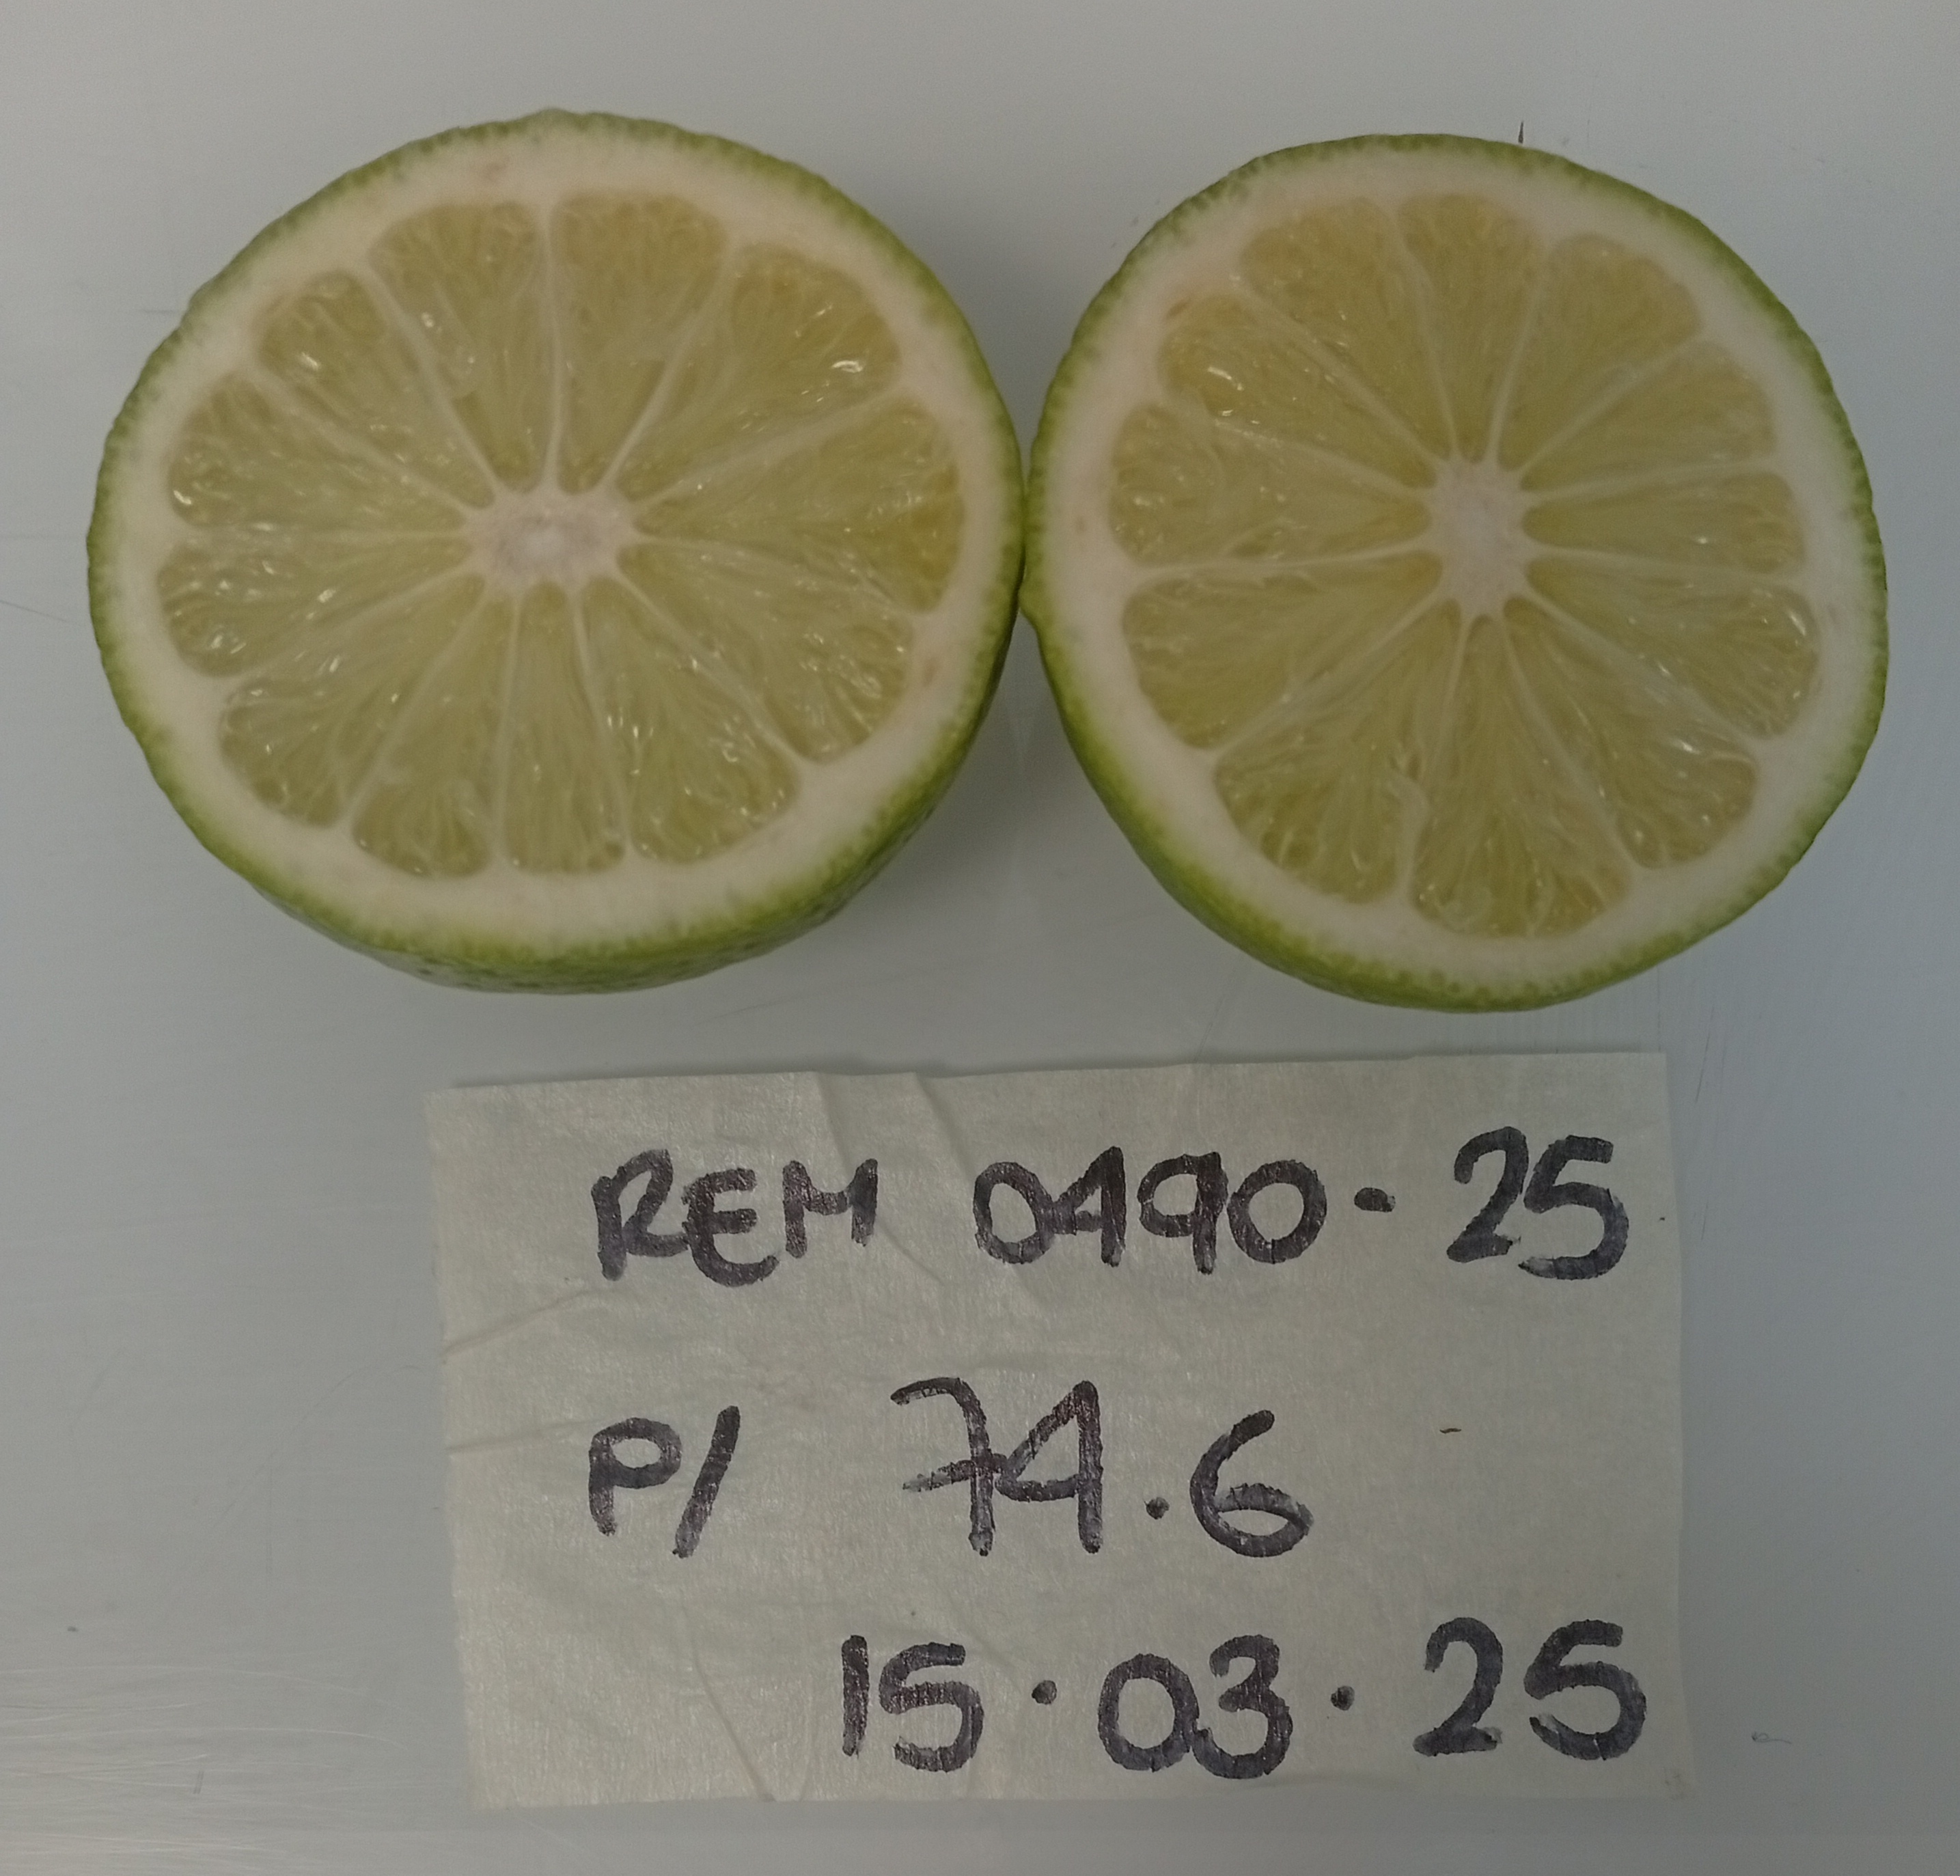 REM 0490-25
P/ 74.6
15.03.25